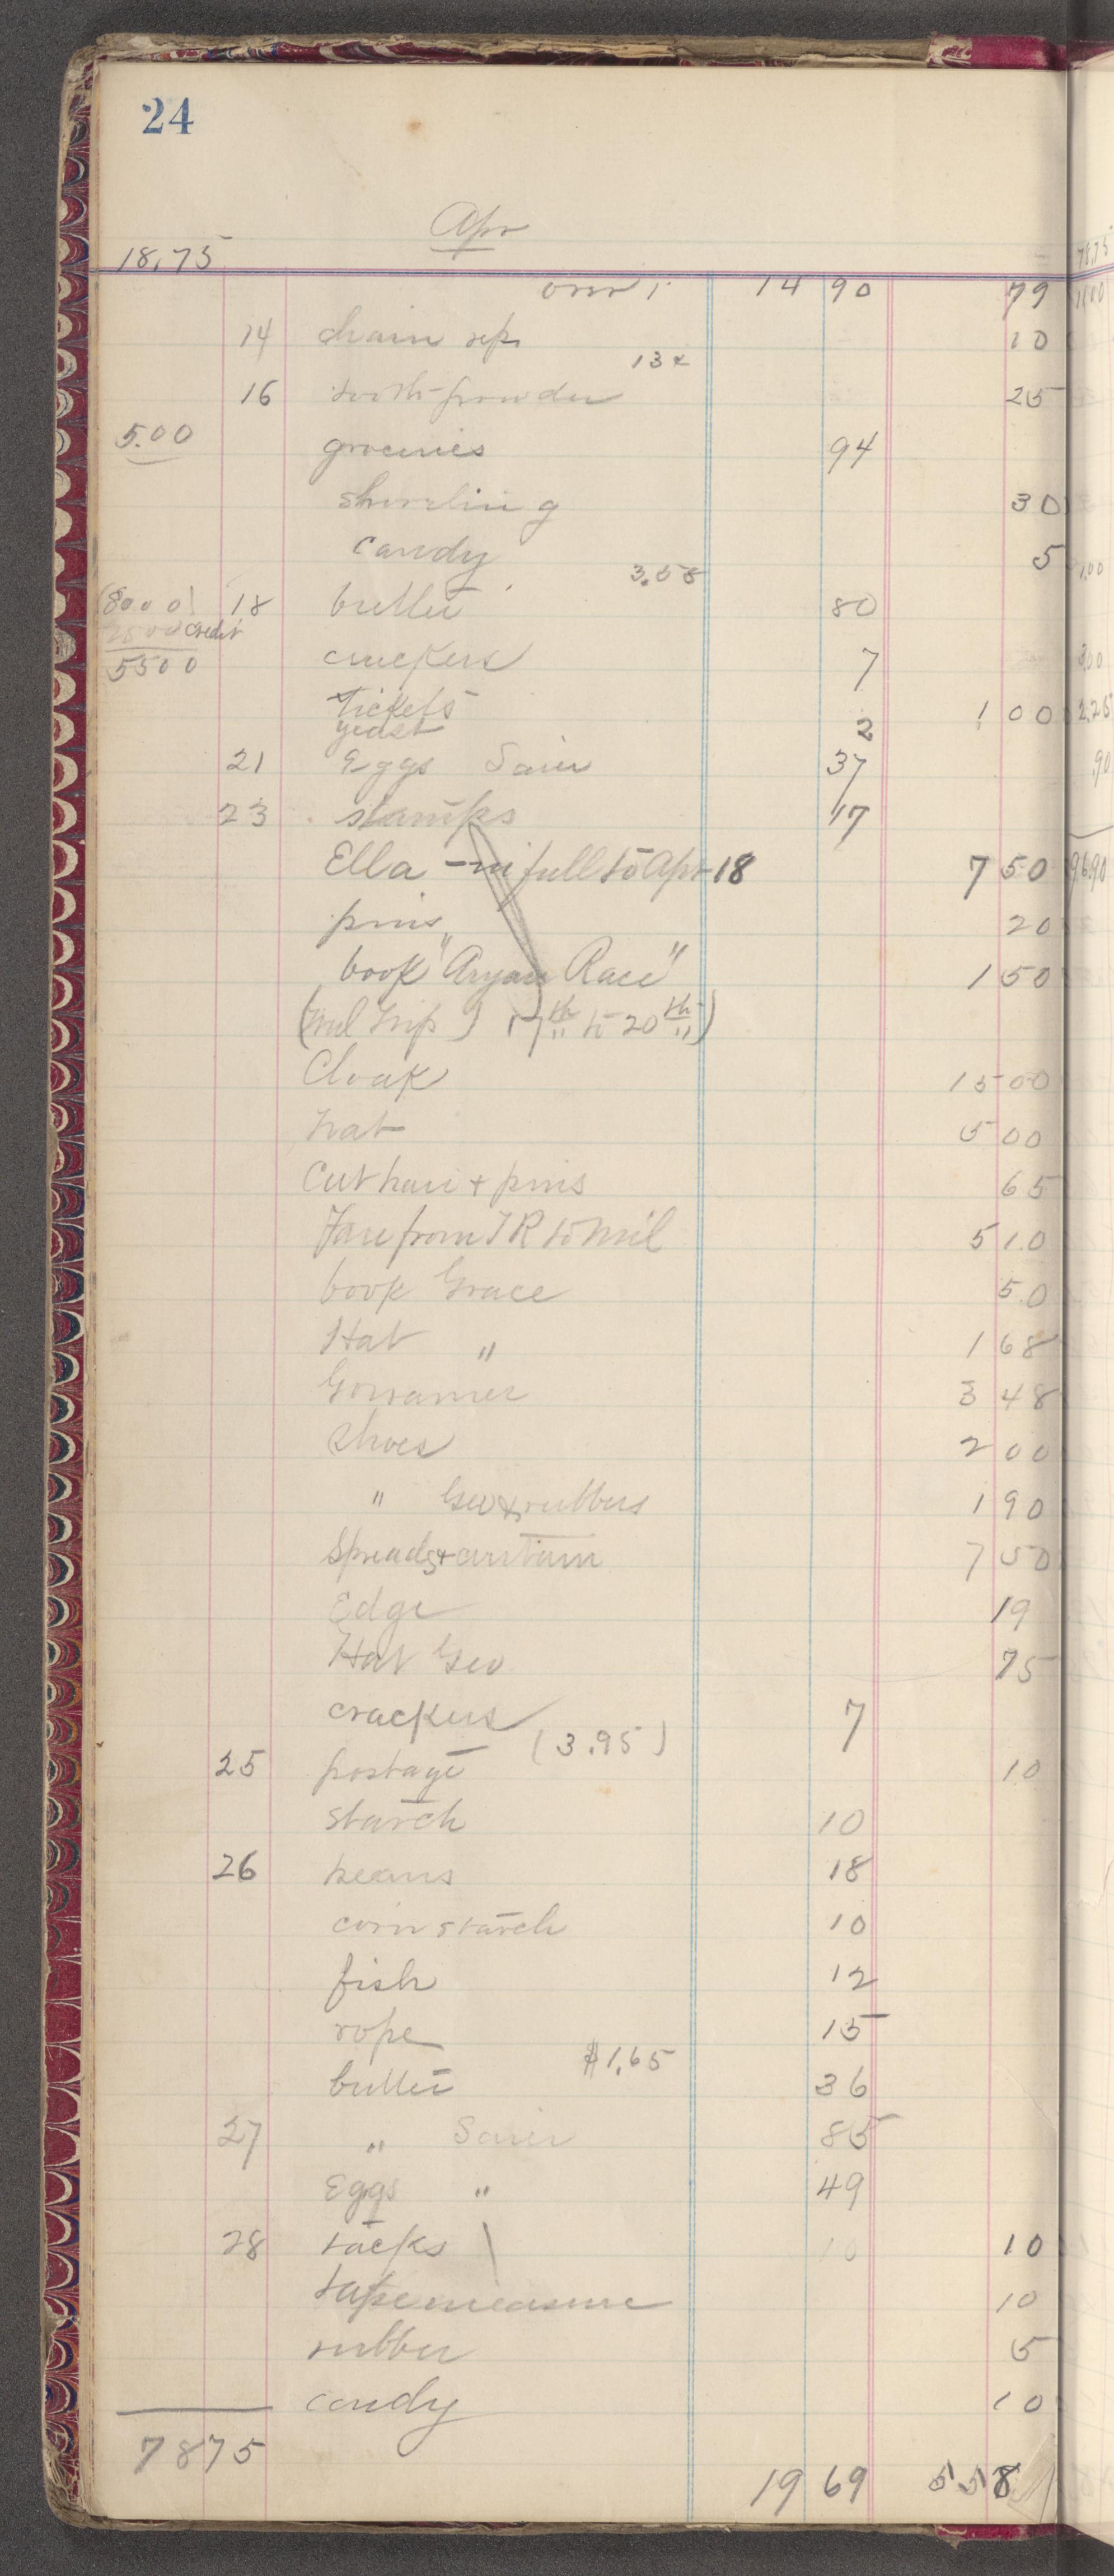 24
Apr
18,75
over 14 90 79
14 chain rep. 10
13¢
16 tooth-powder 25
5.00 groceries 94
shoveling 30
candy 5
3.58
(8000) 18 butter 80
2500 credit
5500 crackers 7
Tickets 1 00
yeast 2
21 Eggs Sarer 37
23 stamps 17
Ella - in full to Apr 18 7 50
pins 20
book "Aryan Race" 1 50
(Mil Trip) 17th to 20th)
Cloak 15 00
hat 5 00
Cut hair + pins 65
Fare from T R to Mil 5 10
book Grace 50
Hat " 1 68
Gossamer 3 48
Shoes 2 00
" Geo & rubbers 1 90
Spreads + curtain 7 50
Edge 19
Hat Geo 75
crackers 7
(3.95)
25 postage 10
starch 10
26 beans 18
corn starch 10
fish 12
rope 15
$1,65
butter 36
27 " Sarer 85
Eggs " 49
28 tacks 10 10
tape measure 10
rubber 5
candy 10
78 75
19 69 55 8